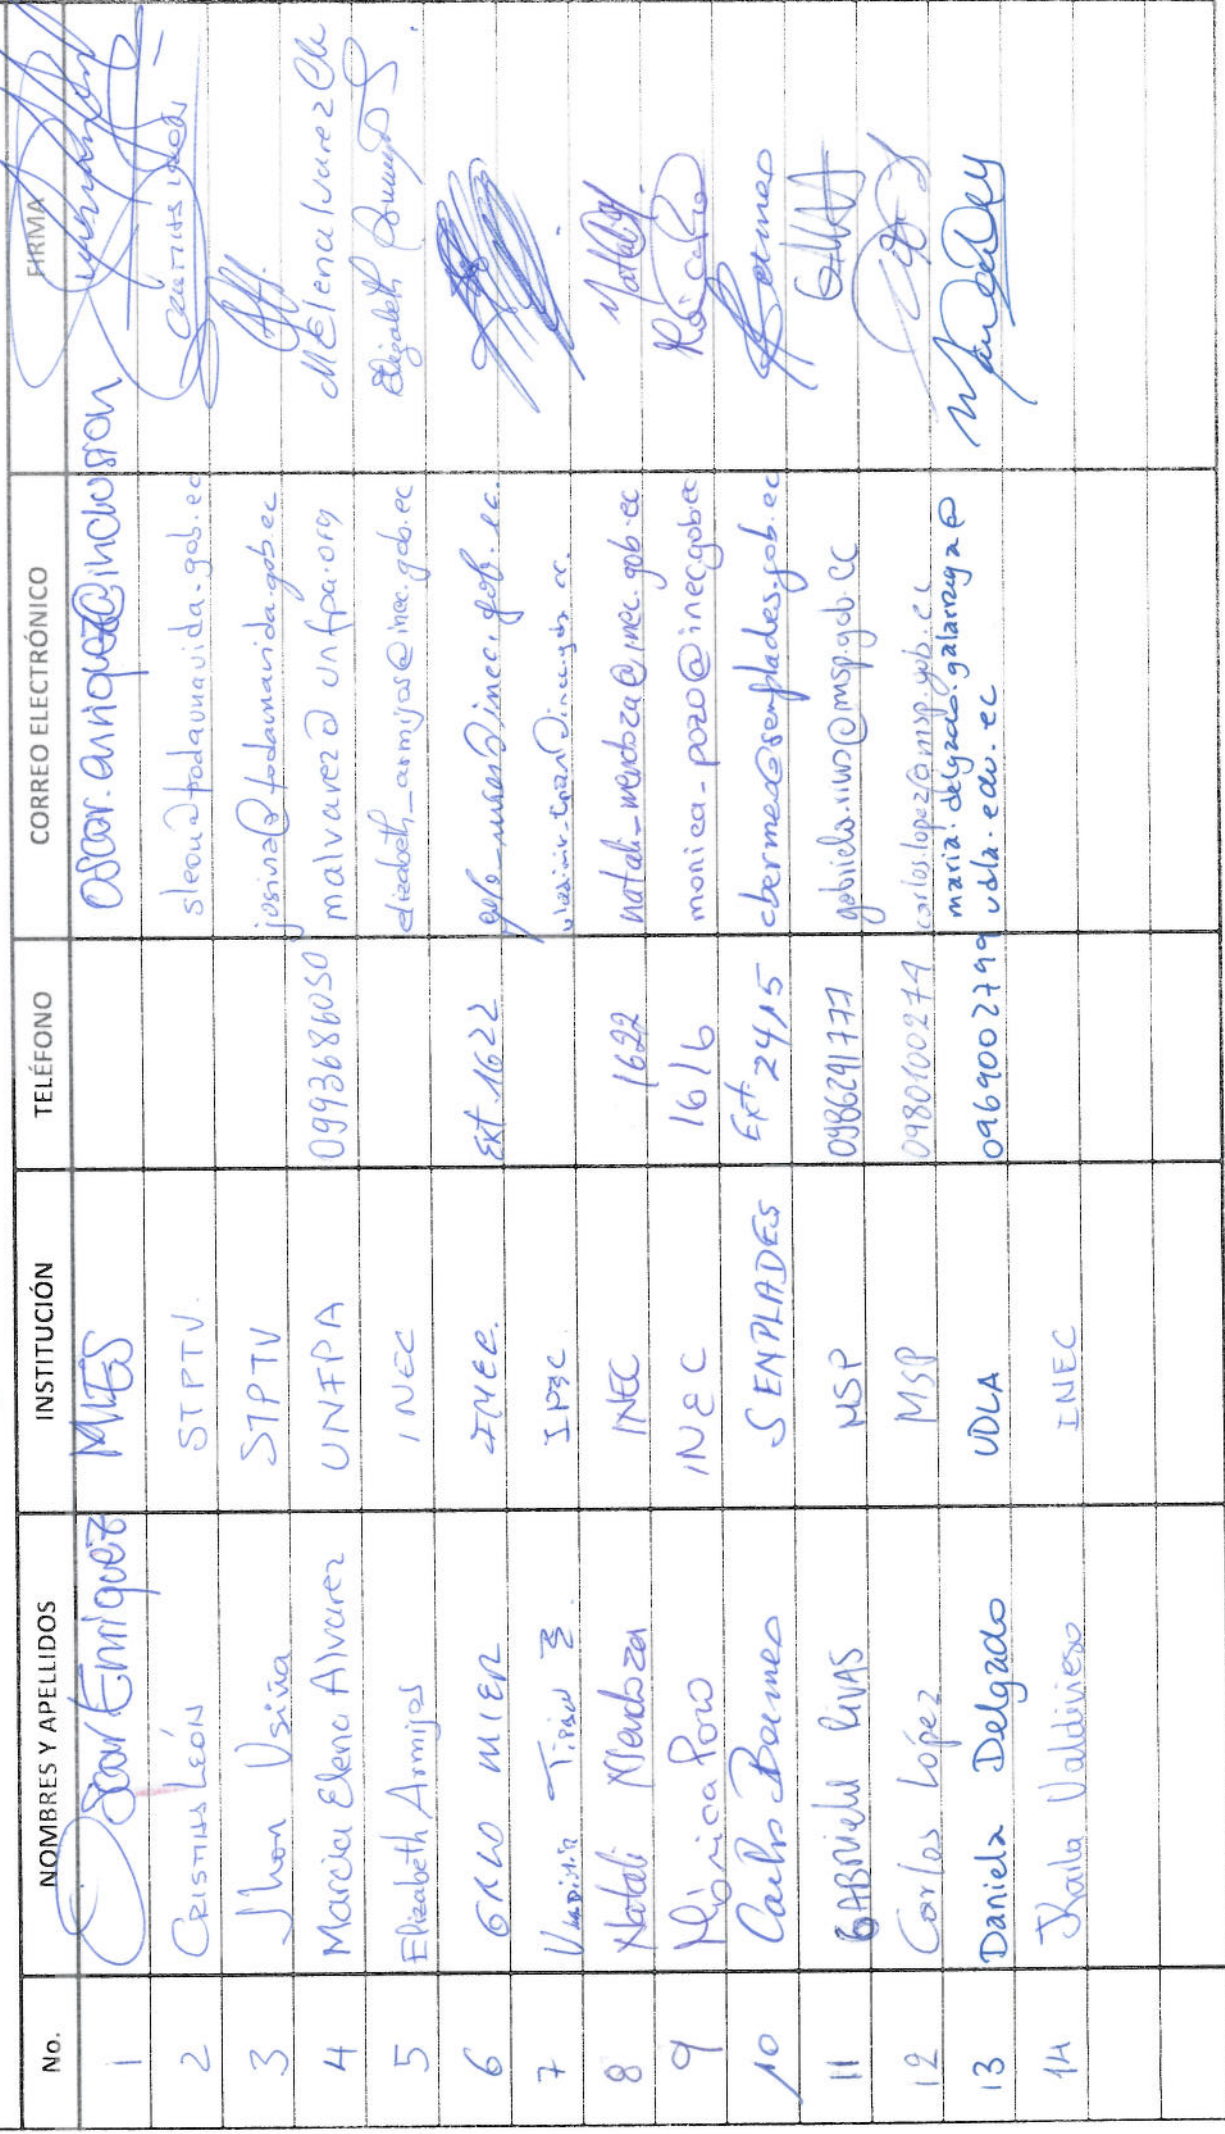 No. NOMBRES Y APELLIDOS INSTITUCIÓN TELÉFONO CORREO ELECTRÓNICO FIRMA
1 Oscar Enriquez MIES oscar.enriquez@inclusion
2 CRISTIAN LEÓN STPTV. sleon@todaunavida.gob.ec
3 Jhon Usiña STPTV josina@todaunavida.gob.ec
4 Marcia Elena Alvarez UNFPA 0993686050 malvarez@unfpa.org MElenalvarezCh
5 Elizabeth Armijos INEC elizabeth_armijos@inec.gob.ec Elizabeth
6 GALO MIER INEC. Ext. 1622
7 INEC
8 Natali Mendoza INEC 1622 natali_mendoza@inec.gob.ec Nathaly
9 Mónica Pozo INEC 1616 monica_pozo@inec.gob.ec
10 Carlos Bermeo SENPLADES Ext. 2415 cbermeo@senplades.gob.ec Bermeo
11 GABRIELA RIVAS MSP 0986291777 gabriela.rivas@msp.gob.ec
12 Carlos López MSP 0980100274 carlos.lopez@msp.gob.ec
13 Daniela Delgado UDLA 0969002799 maria.delgado.galarraga@
udla.edu.ec
14 Karla Valdivieso INEC